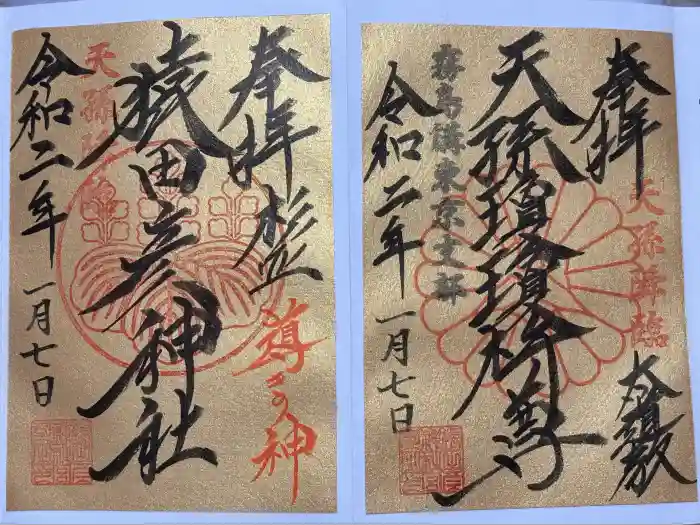 奉拝
天孫降臨
天孫瓊瓊杵尊
霧島講東京支部
令和二年 一月七日
奉拝 杉並
導きの神
猿田彦神社
天孫降臨
令和二年 一月七日